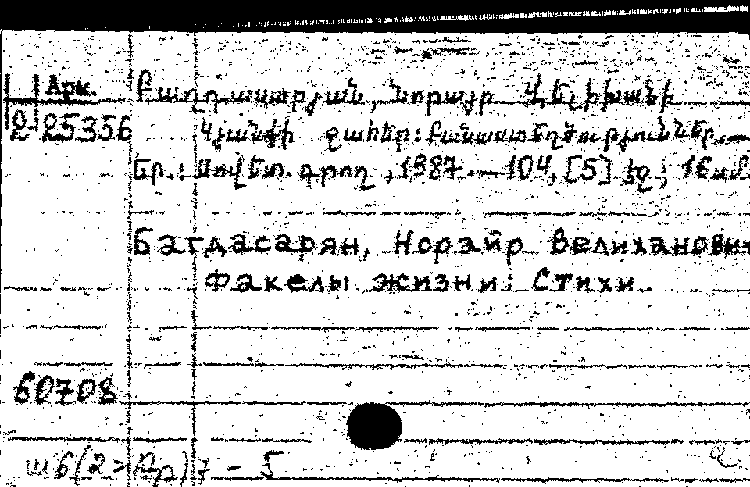 Арм. Բաղդասարյան, Նորայր Վելիխանի
2-25356 Կյանքի ջահեր: Բանաստեղծություններ.—
Եր.: Սովետ. գրող, 1987.— 104, [5] էջ; 16 սմ
Багдасарян, Норайр Велиханович
Факелы жизни: Стихи.
60708
ш6(2=Ар)7 - 5